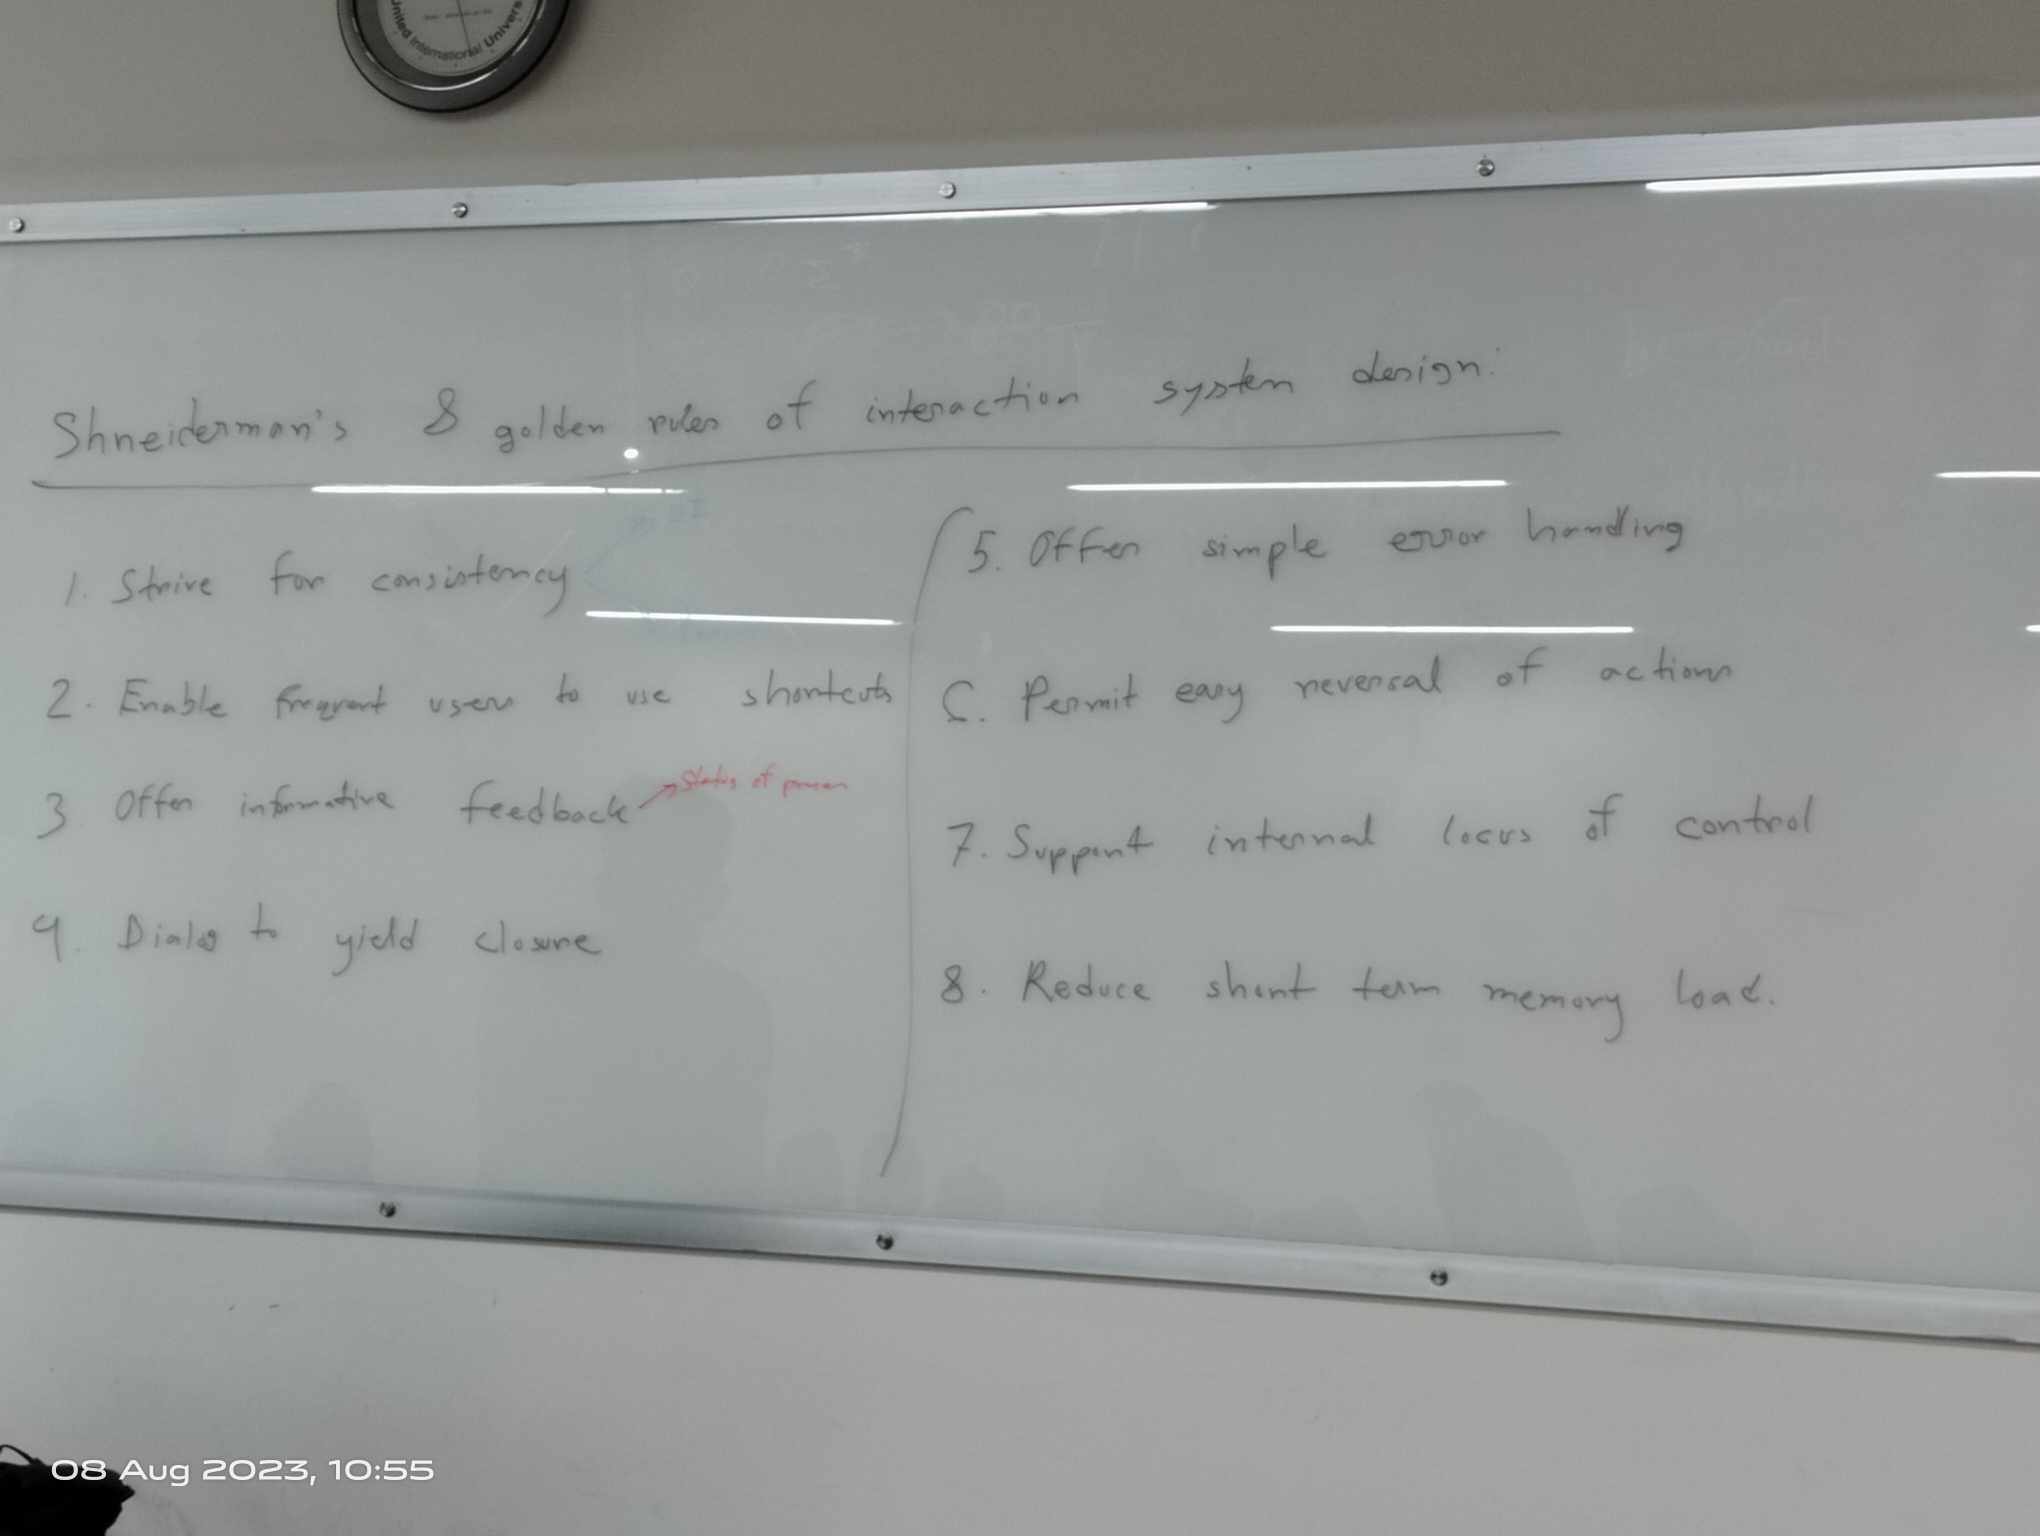 United International Univers
Shneiderman's 8 golden rules of interaction system design:
1. Strive for consistency
2. Enable frequent users to use shortcuts
3 Offer informative feedback
Status of
4. Dialog to yield closure
5. Offer simple error handling
6. Permit easy reversal of actions
7. Support internal locus of control
8. Reduce short term memory load.
08 Aug 2023, 10:55